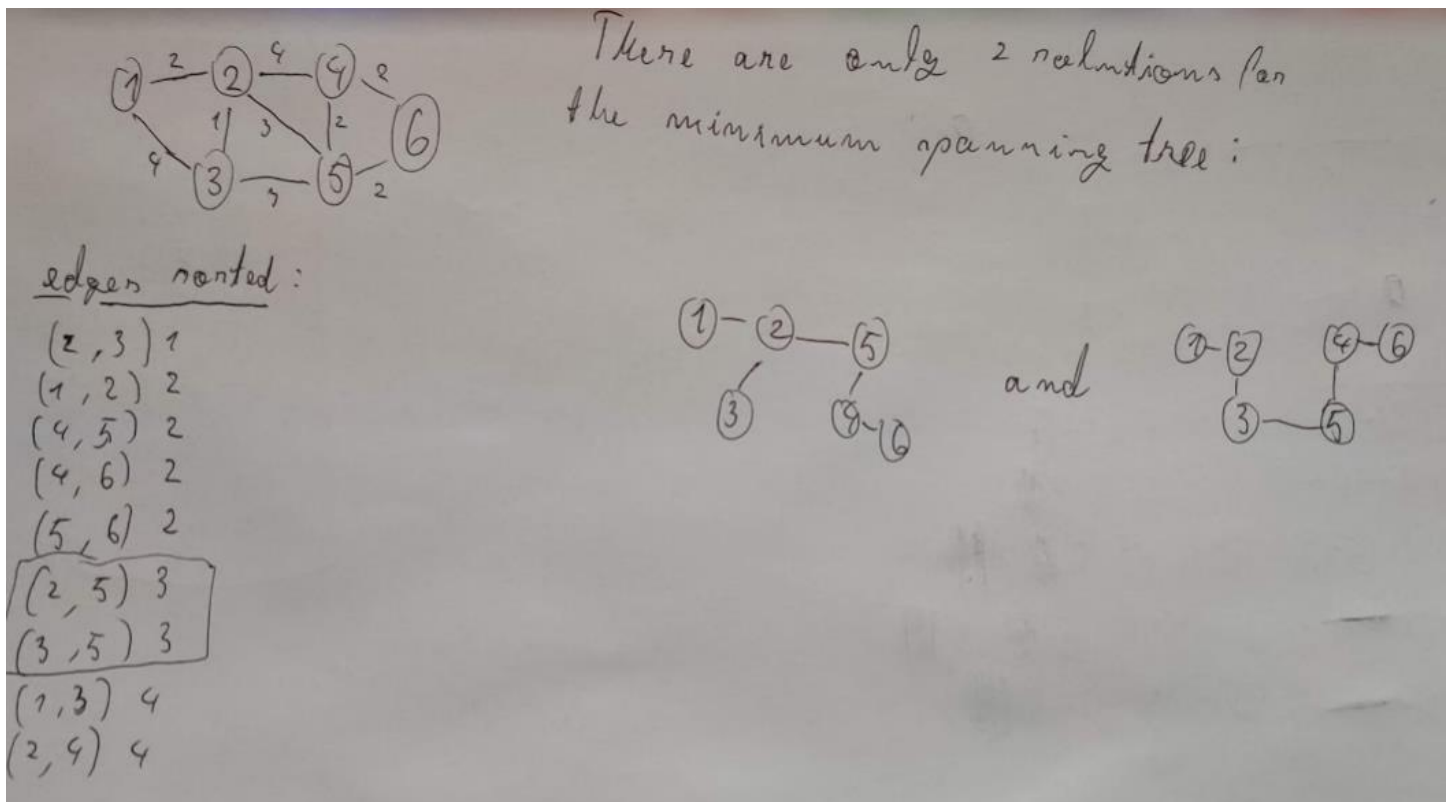 2 4 2
1 2 4
1 3 2 6
4 3 5
3 2
There are only 2 solutions for
the minimum spanning tree:
edges sorted:
(2,3) 1
(1,2) 2
(4,5) 2
(4,6) 2
(5,6) 2
(2,5) 3
(3,5) 3
(1,3) 4
(2,4) 4
1 2 5
3 4 6
and
1 2 4 6
3 5